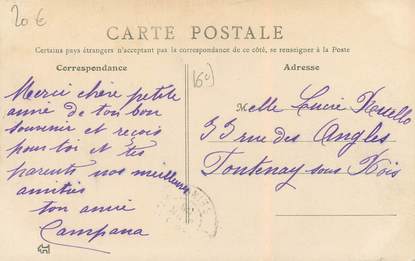 20 €
CARTE POSTALE
Certains pays étrangers n'acceptant pas la correspondance de ce côté, se renseigner à la Poste
Correspondance
Adresse
Merci chère petite
amie de ton bon
souvenir et reçois
pour toi et tes
parents nos meilleures
amitiés
ton amie
Campana
Melle Lucie
33 rue des Angles
Fontenay sous Bois